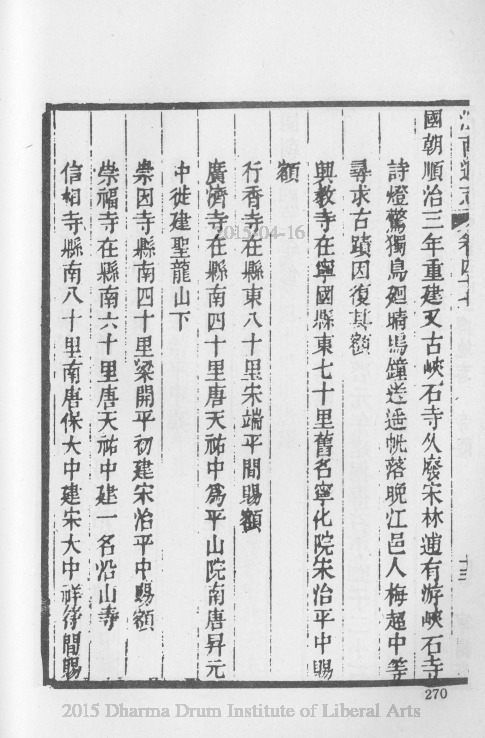 江南通志 卷四十七 十三
國朝順治三年重建又古峽石寺久廢宋林逋有游峽石寺
詩燈驚獨鳥廻晴塢鐘送遥帆落晚江邑人梅超中等
尋求古蹟因復其額
興教寺在寧國縣東七十里舊名寧化院宋治平中賜
額
行香寺在縣東八十里宋端平間賜額
廣濟寺在縣南四十里唐天祐中爲平山院南唐昇元
中徙建聖龍山下
崇因寺縣南四十里梁開平初建宋治平中賜額
崇福寺在縣南六十里唐天祐中建一名沿山寺
信相寺縣南八十里南唐保大中建宋大中祥符間賜
2015-04-16
270
2015 Dharma Drum Institute of Liberal Arts